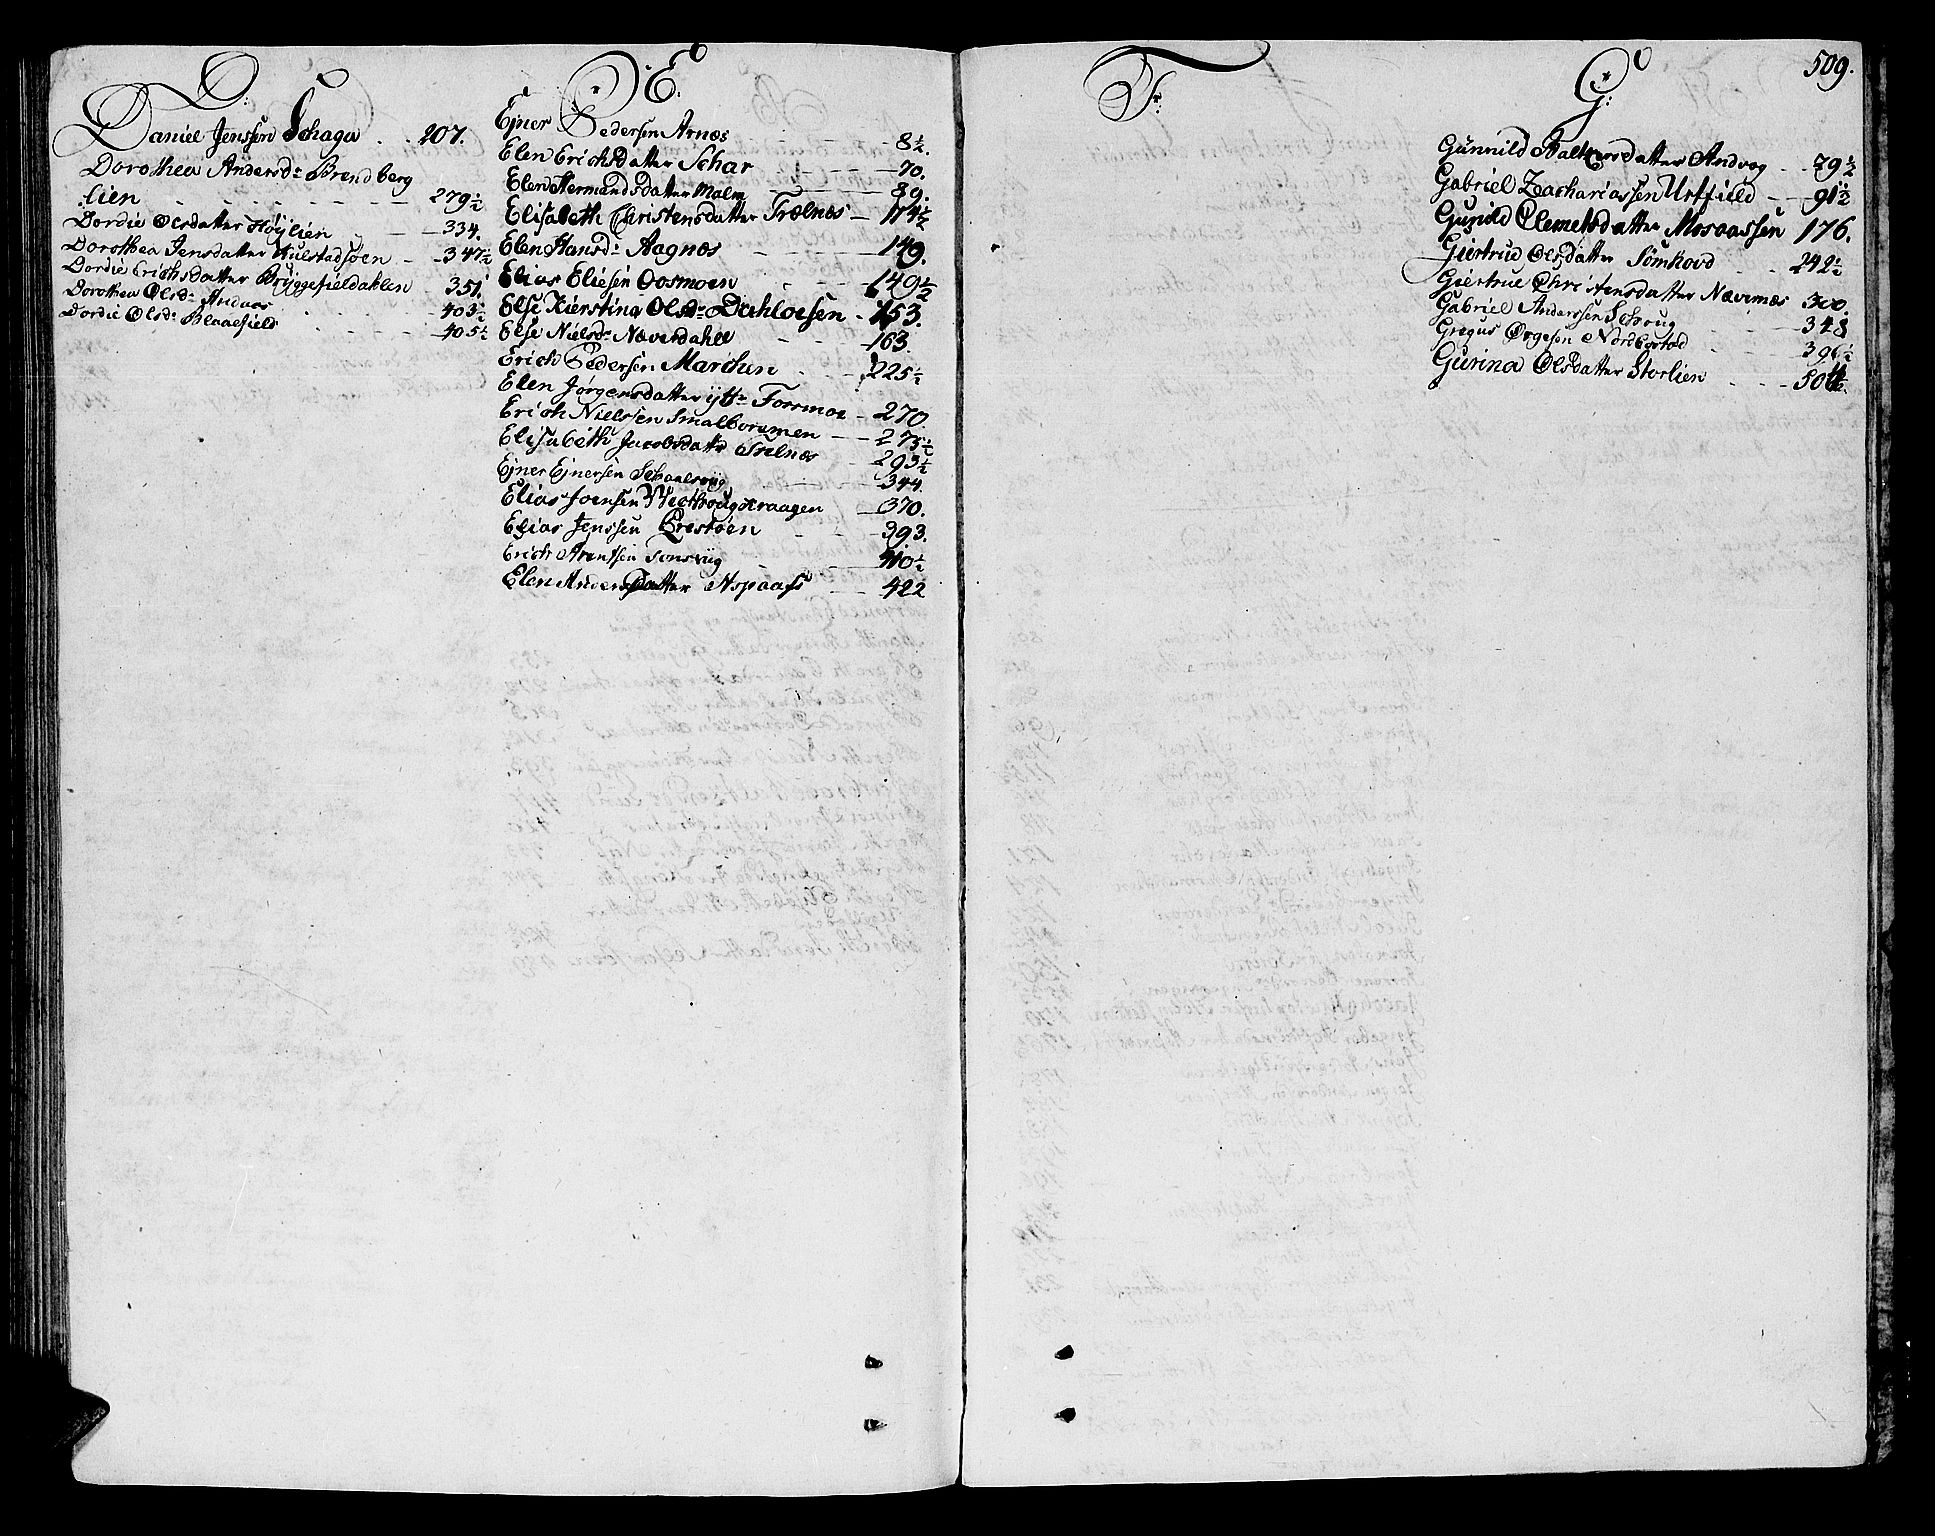 D:
Daniel Jenssen Schaga . . 207.
Dorothea Andersd: Brendberg
lien - - - - 279½
Dordie Olsdatter Høylien - - 334.
Dorothea Jensdatter Hulstadsøen - 347½
Dordie Erichsdatter Bryggefieldahlen 351.
Dorothea Olsd: Andaas - - 403½
Dordie Olsd: Blaaefield - - 405½
E:
Ejner Pedersen Arnæs - - 8½.
Elen Erichsdatter Schar - - 70.
Elen Hermandsdatter Malm - - 89.
Elisabeth Christensdatter Trælnæs - 114½
Elen Hansd: Aagnæs - - 149.
Elias Eliesen Oosmoen - - 149½
Else Kierstina Olsd: Dahloesen - 153.
Else Nielsd: Næverdahll - - 163.
Erich Pedersen Marchen - - 225½
Elen Jørgensdatter ytt: Forsmoe - 270.
Erich Nielssen Smalboremen - - 275½
Elisabeth Jacobsdatter Trelnæs - 293½
Ejner Ejnersen Schaalsviig - - 344.
Elias Joensen - 370.
Elias Jenssen - - 393.
Erich Arentsen Sonsviig - - 410½
Elen Andersdatter Aspaass - - 422
F:
G:
509.
Gunnild Baltzersdatter Andvog - - 79½
Gabriel Zachariassen Urtfield - - 91½
Gunild Clemetsdatter Mosaassen 176.
Giertrud Olsdatter Sømhovd - - 242½
Giertrue Christensdatter Nævernæs 300.
Gabriel Anderssen Schoug - - 348
Gregus Ørgesen Nordberstad - -
Gurina Olsdatter Storlien - - -